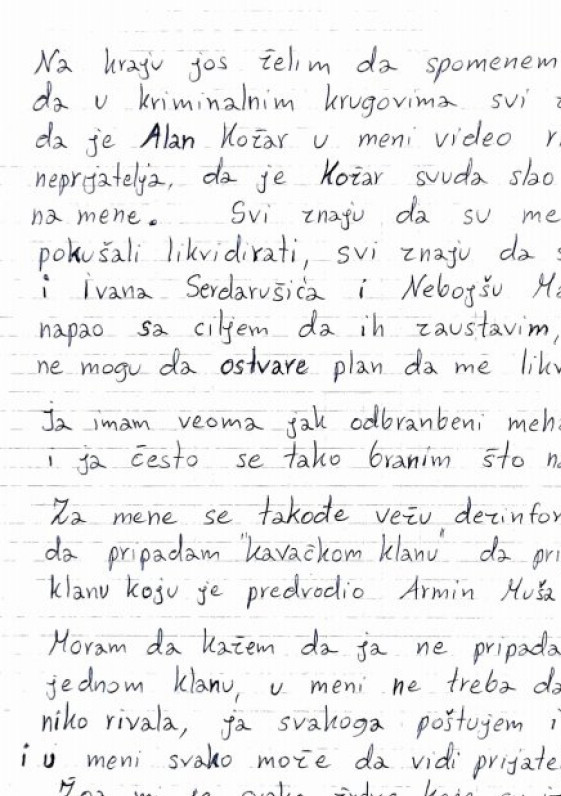 Na kraju jos želim da spomenem
da u kriminalnim krugovima svi
da je Alan Kožar u meni video
neprijatelja, da je Kožar svuda slao
na mene. Svi znaju da su me
pokušali likvidirati, svi znaju da
i Ivana Serdarušića i Nebojšu
napao sa ciljem da ih zaustavim,
ne mogu da ostvare plan da me
Ja imam veoma jak odbranbeni
i ja često se tako branim što
Za mene se takođe vežu
da pripadam "kavačkom klanu" da
klanu koju je predvodio Armin Muša
Moram da kažem da ja ne
jednom klanu, u meni ne treba da
niko rivala, ja svakoga poštujem i
i u meni svako može da vidi